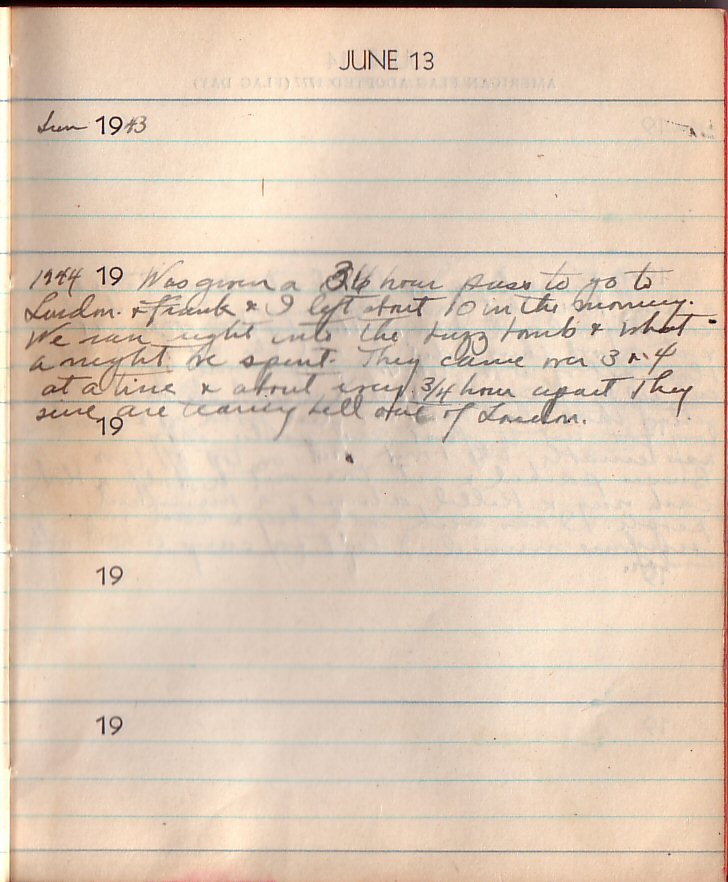 JUNE 13
Sun 1943
1944 19 Was given a 36 hour pass to go to
London. & Frank & I left about 10 in the morning.
We ran right into the buzz bomb & what
a night we spent. They came over 3 or 4
at a time & about every 3/4 hour apart They
sure are tearing hell out of London.
19
19
19